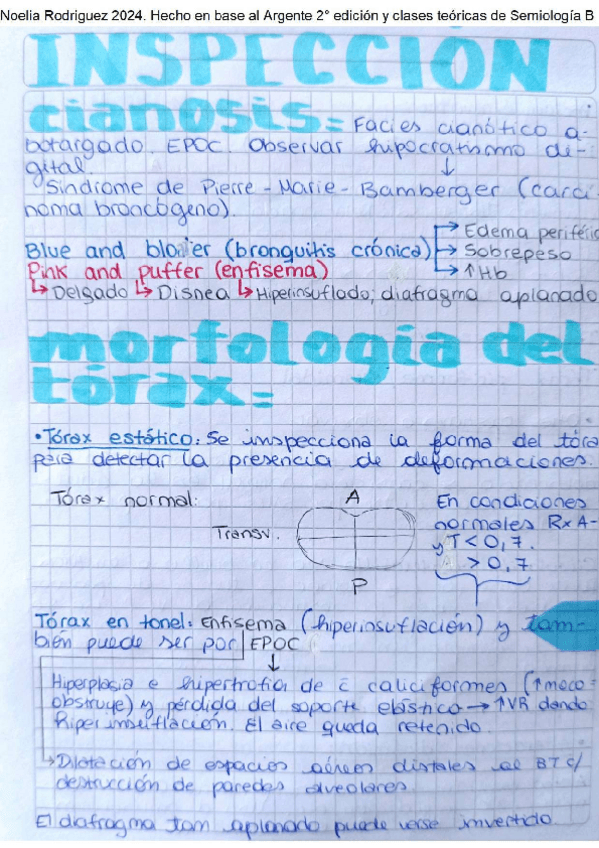 Noelia Rodriguez 2024. Hecho en base al Argente 2° edición y clases teóricas de Semiología B
INSPECCIÓN
cianosis= Facies cianótico a-
botargado. EPOC. Observar hipocratismo di-
gital. ↓
Síndrome de Pierre-Marie-Bamberger (carci
noma broncógeno).
→ Edema periféric
Blue and bloater (bronquitis crónica) → Sobrepeso
Pink and puffer (enfisema) → ↑Hb
↳ Delgado ↳ Disnea ↳ Hiperinsuflado; diafragma aplanado
morfología del
tórax=
• Tórax estático: Se inspecciona la forma del tóra
para detectar la presencia de deformaciones.
Tórax normal: A En condiciones
Transv. normales Rx A-
y T<0,7.
>0,7
P
Tórax en tonel: Enfisema (hiperinsuflación) y tam-
bién puede ser por EPOC
↓
Hiperplasia e hipertrofia de c̄ caliciformes (↑moco-
obstruye) y pérdida del soporte elástico → ↑VR dando
hiperinsuflación. El aire queda retenido.
↳ Dilatación de espacios aéreos distales al BT c/
destrucción de paredes alveolares
El diafragma tam aplanado puede verse invertido.